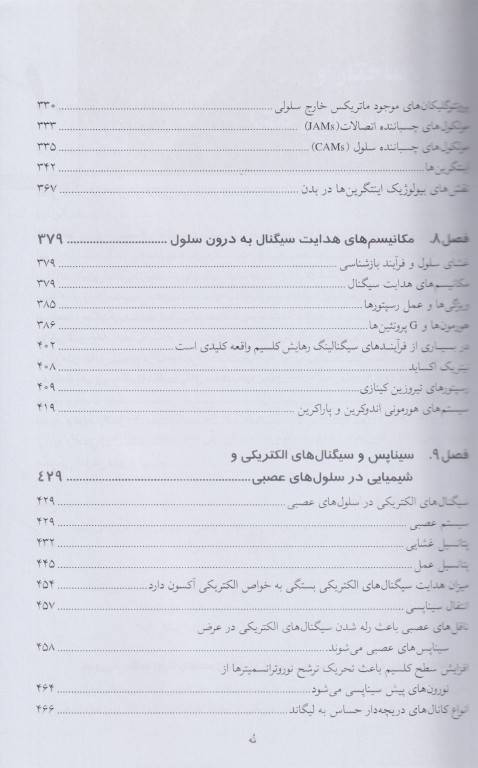 پروتئوگلیکان‌های موجود ماتریکس خارج سلولی ۳۳۰
مولکول‌های چسباننده اتصالات (JAMs) ۳۳۳
مولکول‌های چسباننده سلول (CAMs) ۳۳۵
اینتگرین‌ها ۳۴۲
نقش‌های بیولوژیک اینتگرین‌ها در بدن ۳۶۷
فصل ۸. مکانیسم‌های هدایت سیگنال به درون سلول ۳۷۹
غشای سلول و فرآیند بازشناسی ۳۷۹
مکانیسم‌های هدایت سیگنال ۳۷۹
ویژگی‌ها و عمل رسپتورها ۳۸۵
هورمون‌ها و G پروتئین‌ها ۳۸۶
در بسیاری از فرآیندهای سیگنالینگ رهایش کلسیم واقعه کلیدی است ۴۰۲
نیتریک اکساید ۴۰۸
رسپتورهای تیروزین کینازی ۴۰۹
سیستم‌های هورمونی اندوکرین و پاراکرین ۴۱۹
فصل ۹. سیناپس و سیگنال‌های الکتریکی و
شیمیایی در سلول‌های عصبی ۴۲۹
سیگنال‌های الکتریکی در سلول‌های عصبی ۴۲۹
سیستم عصبی ۴۲۹
پتانسیل غشایی ۴۳۲
پتانسیل عمل ۴۴۵
میزان هدایت سیگنال‌های الکتریکی بستگی به خواص الکتریکی آکسون دارد ۴۵۴
انتقال سیناپسی ۴۵۷
ناقل‌های عصبی باعث رله شدن سیگنال‌های الکتریکی در عرض
سیناپس‌های عصبی می‌شوند ۴۵۸
افزایش سطح کلسیم باعث تحریک ترشح نوروترانسمیترها از
نورون‌های پیش سیناپسی می‌شود ۴۶۴
انواع کانال‌های دریچه‌دار حساس به لیگاند ۴۶۶
نُه